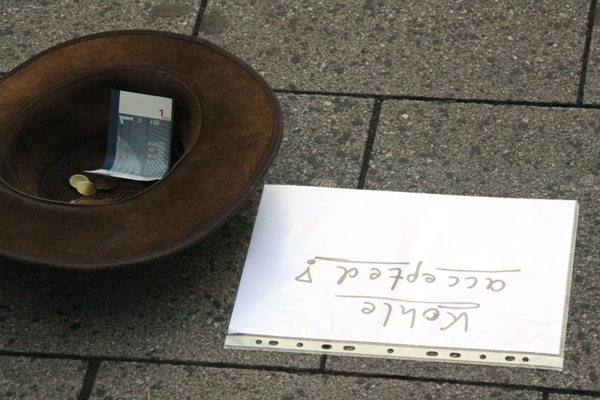 Kohle
accepted!
1